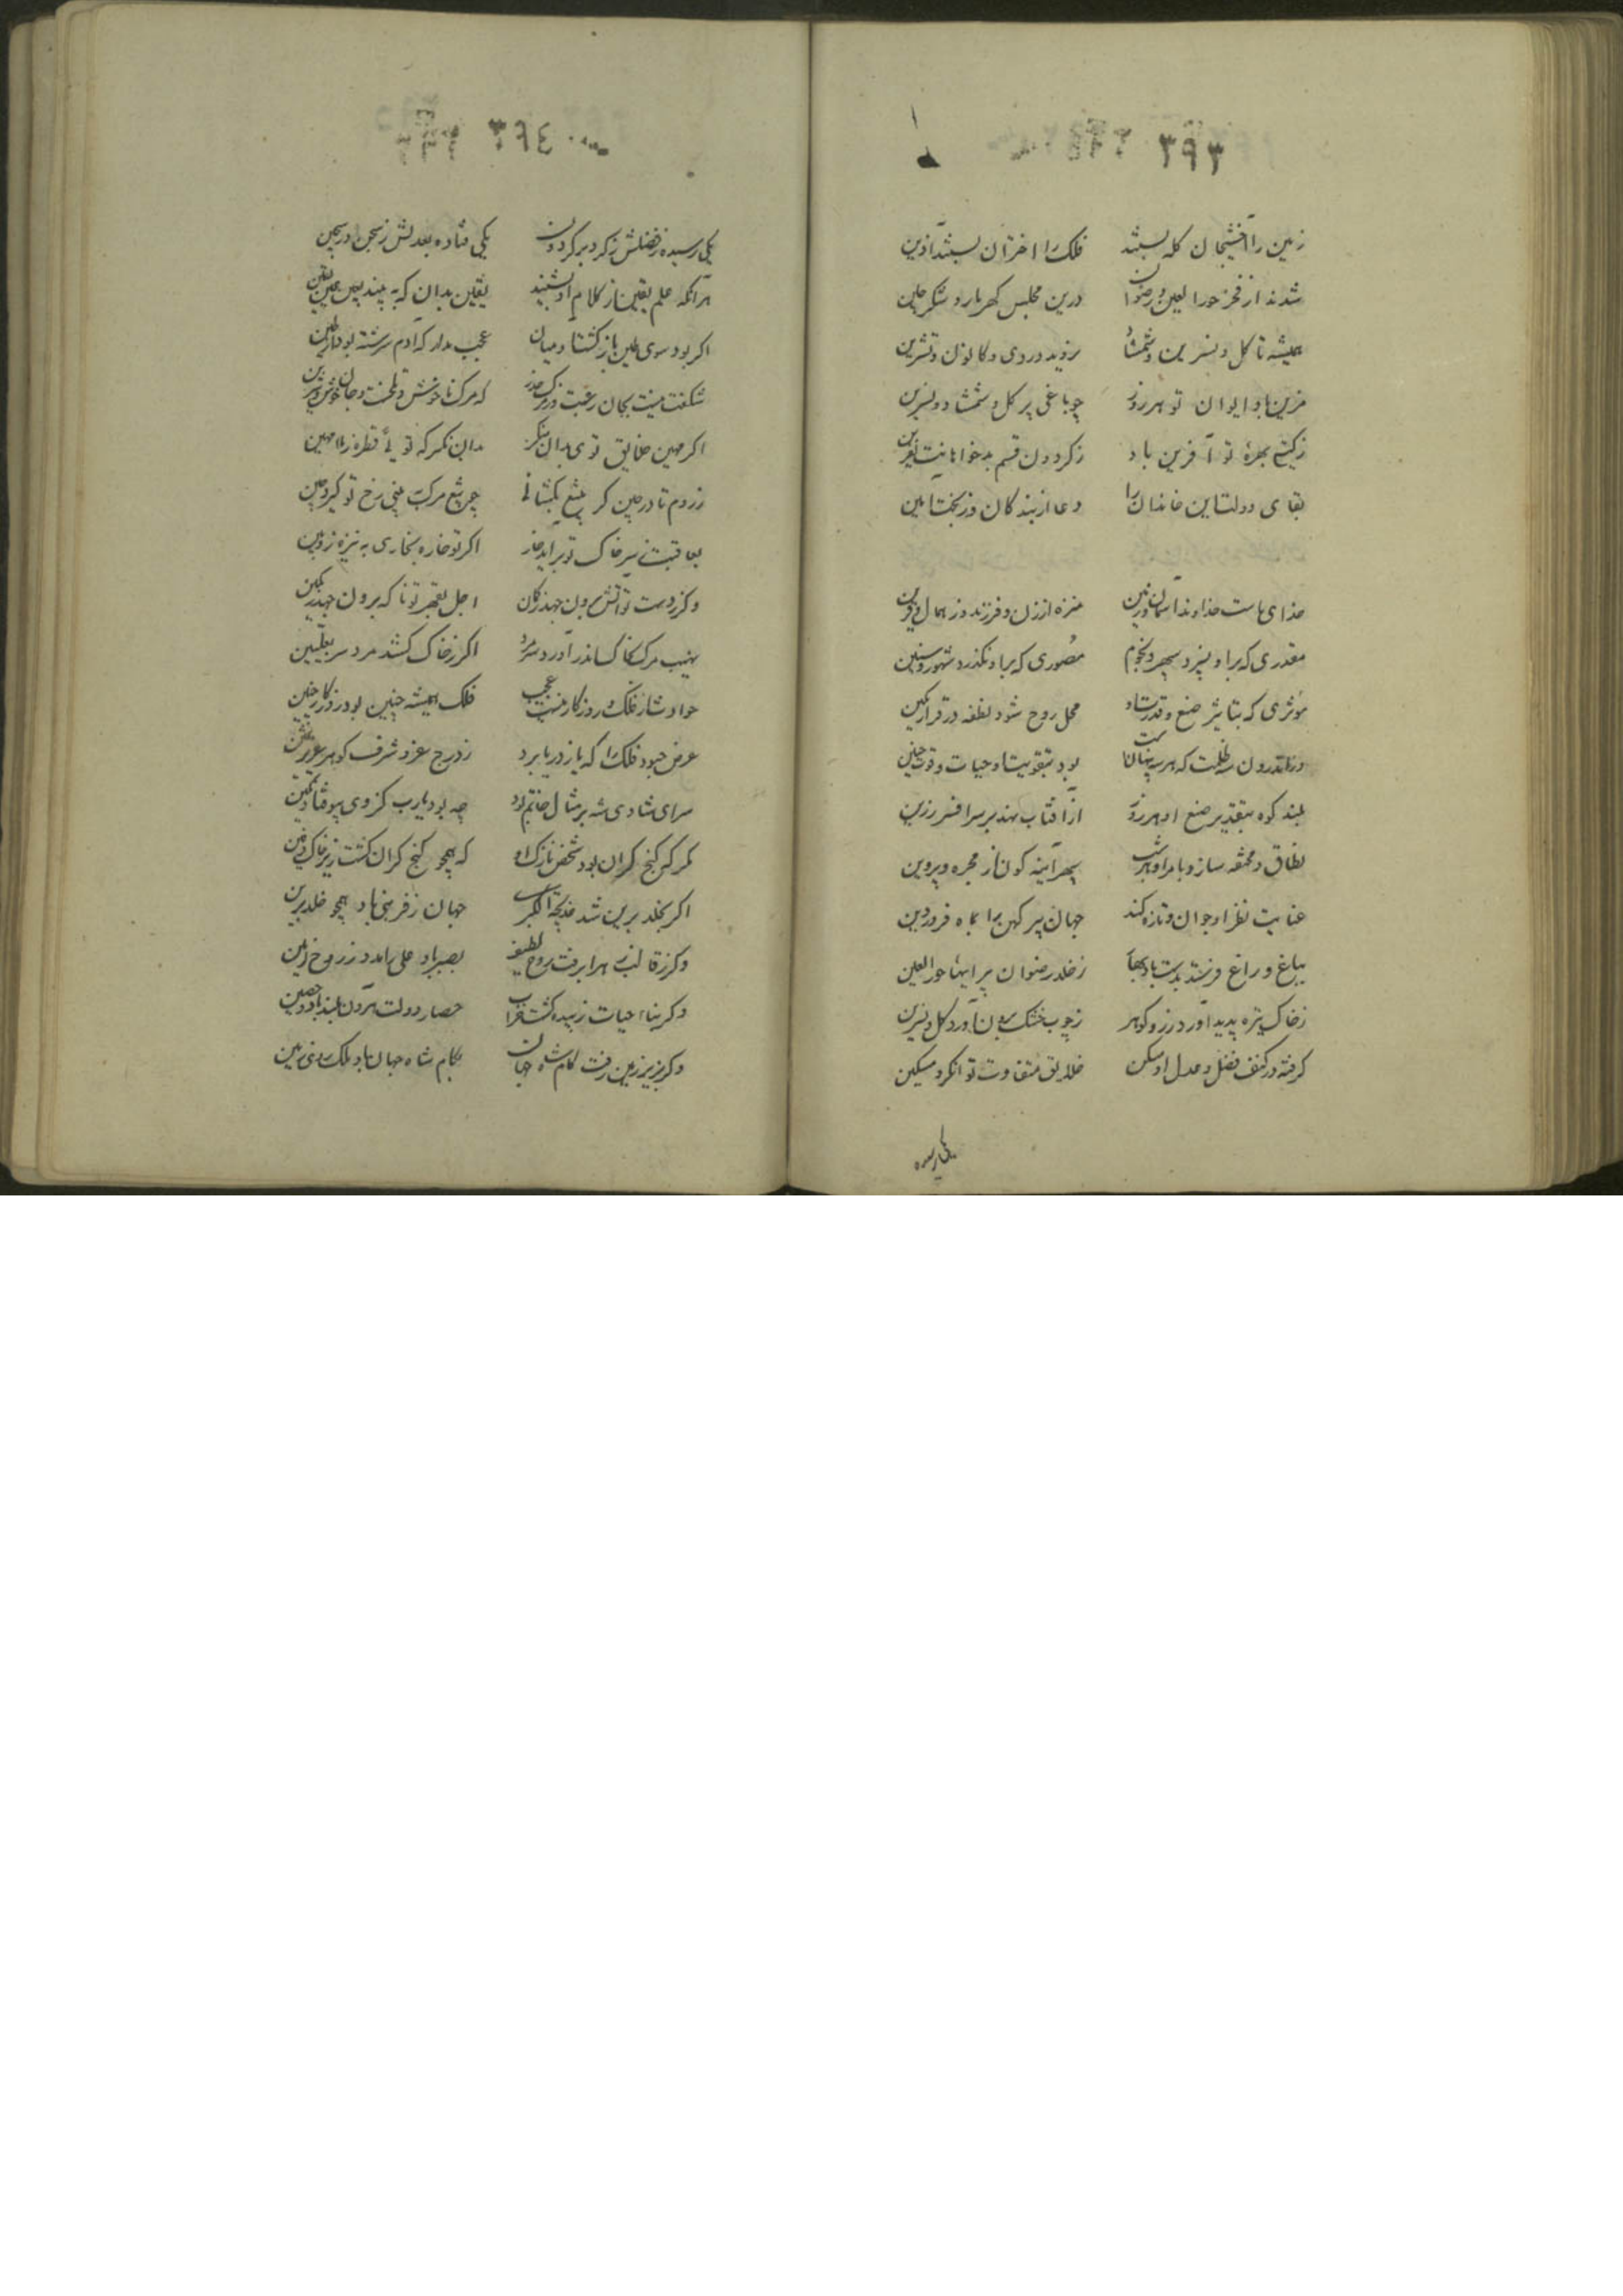 ٣٩٣
زمین را آفتیجان کله بستند فلک را اختران بستند آذین
شدند از فخر حورا لعین و رضوان درین مجلس کهربار و شکرچین
همیشه تا کل و نسرین و شمشاد بروید در دی و کانون و تشرین
مزین باد ایوان تو هر روز چو باغی پر کل و شمشاد و نسرین
ز کیتی بهرهٔ تو آفرین باد ز کردون قسم بدخواهانت نفرین
بقای دولت این خاندان را دعا از بندکان وز بخت آمین
خدای ماست خداوند آسمان و زمین منزه از زن و فرزند وز همال و قرین
مقدری که برا و نسپرد سپهر و نجوم مصوری که برا و نکذرد شهور و سنین
مؤثری که بتاثیر صنع و قدرت او محل روح شود نطفه در قرار مکین
در اندرون سه ظلمت که هر سه پنهانست بود بتقویت او حیات و قوت جنین
بلند کوه بتقدیر صنع او هر روز از آفتاب نهد بر سر افسر زرین
نطاق و مخنقه سازد بامر او هر شب سپهر آینه کون از مجره و پروین
عنایت نظر او جوان و تازه کند جهان پیر کهن را بماه فروردین
بباغ و راغ فرستد بدست باد بهار ز خلد رضوان پیرایهاء حور العین
ز خاک تیره پدید آورد زر و کوهر ز چوب خشک برون آورد کل و نسرین
کرفته در کنف فضل و عدل او مسکن خلایق متفاوت توانکر و مسکین
یکی رسیده
٣٩٤
یکی رسیده ز فضلش ز کرد بر کردون یکی فتاده بعدلش ز سجن در سجین
هر آنکه علم یقین از کلام او نشنید یقین بدان که نه بیند بچشم عین یقین
اکر بود سوی طین بازکشت آدمیان عجب مدار که آدم سرشته بود از طین
شکفت نیست بجان رغبت و ز مرک حذر که مرک ناخوش و تلخست و جان خوش و شیرین
اکر مهین خلایق توی بدان منکر بدان نکر که تو یک قطره ز ماء مهین
ز روم تا در چین کر بتیغ بکشائی چو تیغ مرک به بینی رخ تو کیرد چین
بعاقبت ز سر خاک تو برآید خار اکر تو خاره بخاری به نیزهٔ زوبین
وکر ز دست تو آتش برون جهد ز کان اجل بقهر تو ناکه برون جهد ز کمین
نهیب مرک بخاکش اندر آورد سر مرد اکر ز خاک کشد مرد سر بعلیین
حوادث از فلک و روزکار نیست عجب فلک همیشه چنین بود و روزکار چنین
عرض چه بود فلک را که باز دریا برد ز درج عز و شرف کوهر عزیز ثمین
سرای شادی شه بر مثال خاتم بود چه بود یارب کز وی بیوفتاد نکین
مکر که کنج کران بود شخص نازک او که همچو کنج کران کشت زیر خاک دفین
اکر بخلد برین شد خدیجة الکبری جهان ز فر بنی باد همچو خلد برین
وکر ز قالب زهرا برفت روح لطیف بصبر باد علی را مدد ز روح امین
وکر بناء حیات زبیده کشت خراب حصار دولت هرون بلند باد و حصین
وکر بزیر زمین رفت کام شاه جهان بکام شاه جهان باد ملک روی زمین